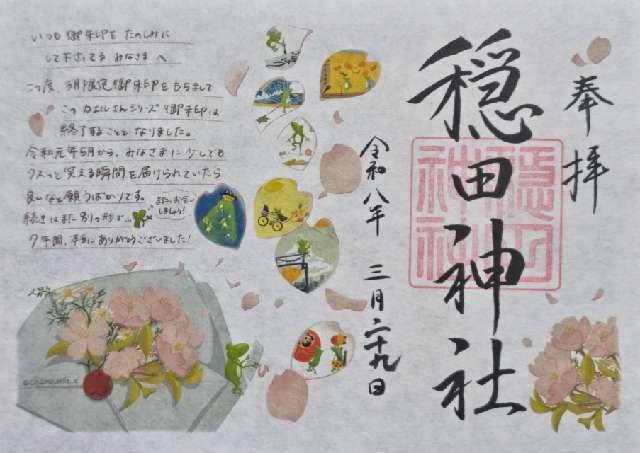 奉拝
穏田神社
穏田
神社
令和八年 三月二十九日
いつも御朱印をたのしみに
して下さってる みなさまへ
この度、3月限定御朱印をもちまして
このカエルさんシリーズ御朱印は
終了することとなりました。
令和元年5月から、みなさまに少しでも
クスッと笑える瞬間を届けられていたら
良いなと願うばかりです。
続きはまた別の形で…
7年間、本当にありがとうございました!